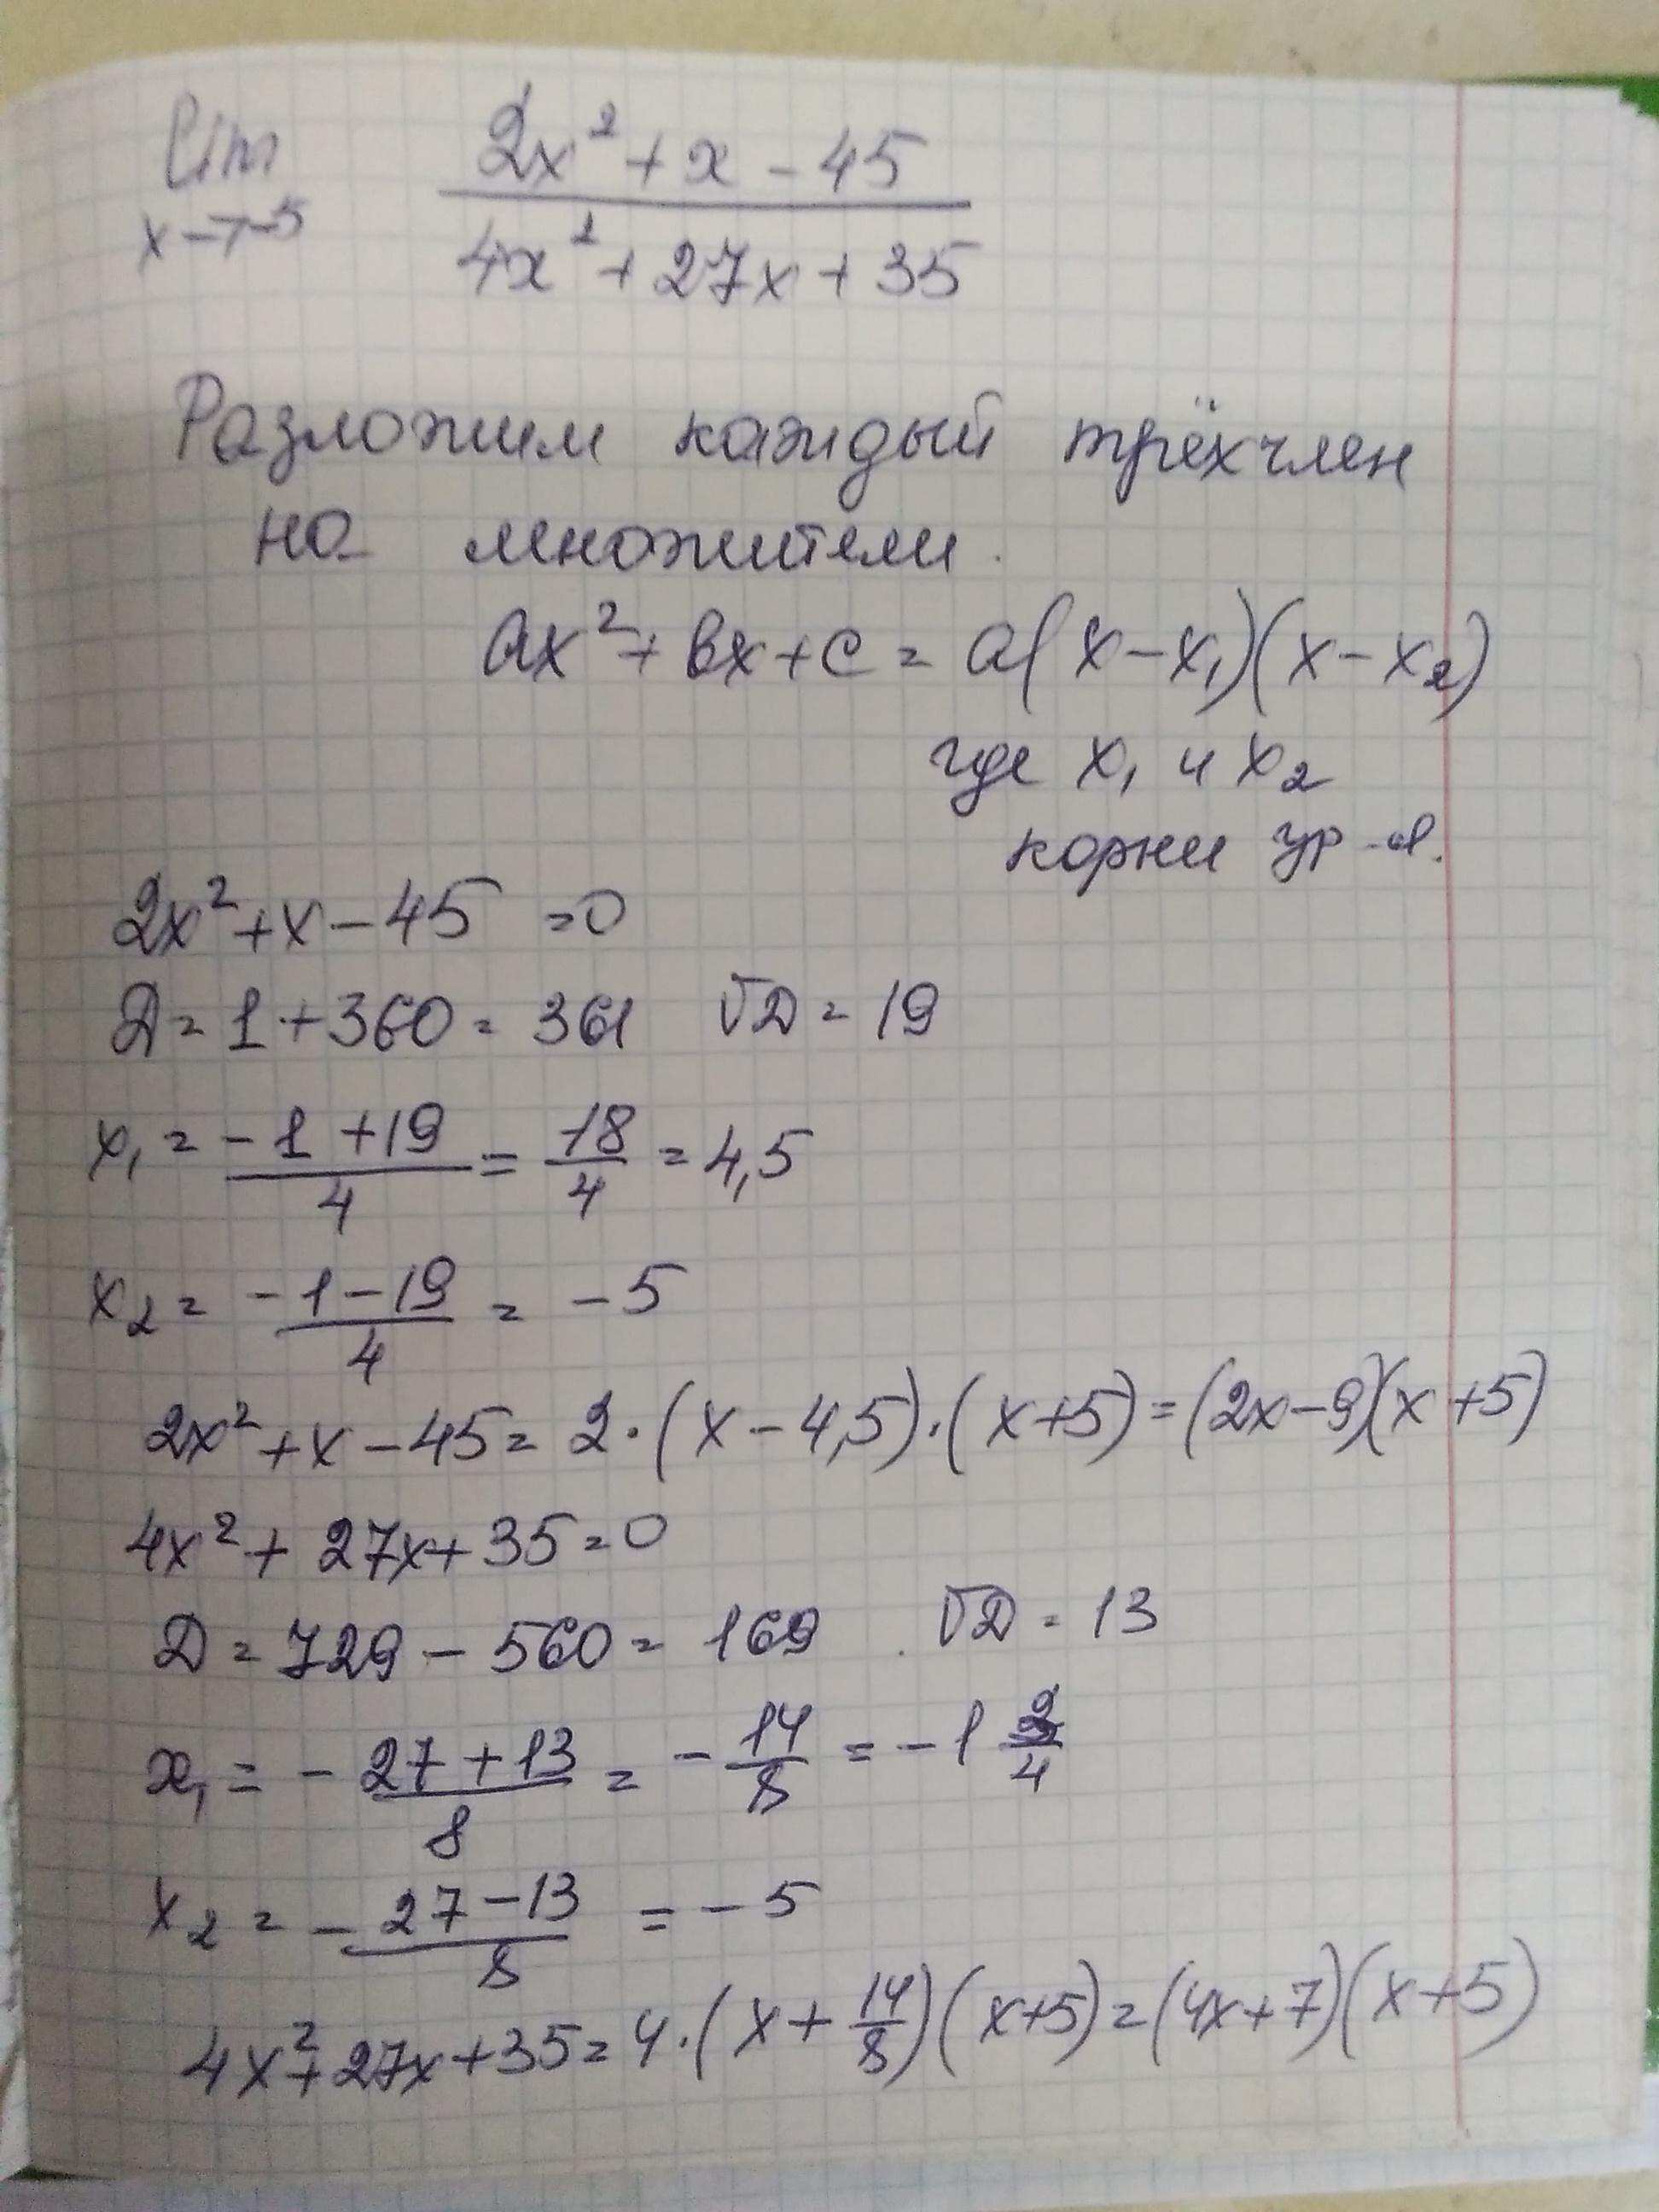 lim 2x² + x - 45
x→-5 4x² + 27x + 35
Разложим каждый трёхчлен
на множители.
ax² + bx + c = a(x - x₁)(x - x₂)
где x₁ и x₂
корни ур-я.
2x² + x - 45 = 0
D = 1 + 360 = 361 √D = 19
x₁ = (-1 + 19)/4 = 18/4 = 4,5
x₂ = (-1 - 19)/4 = -5
2x² + x - 45 = 2·(x - 4,5)·(x + 5) = (2x - 9)(x + 5)
4x² + 27x + 35 = 0
D = 729 - 560 = 169 √D = 13
x₁ = (-27 + 13)/8 = -14/8 = -1
x₂ = (-27 - 13)/8 = -5
4x² + 27x + 35 = 4·(x + 14/8)(x + 5) = (4x + 7)(x + 5)